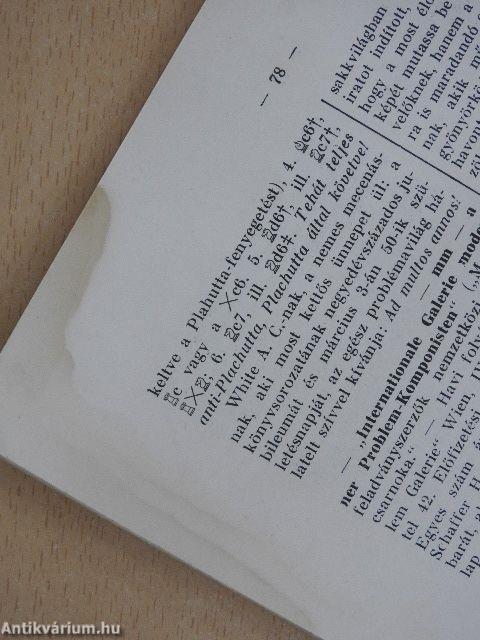 — 78 —
keltve a Plahutta-fenyegetést), 4. ♘c6†,
vagy a ╳c6. 5. ♘d6†, ill. ♘c7†,
6. ♘c7†, ill. ♘d6‡. Tehát teljes
anti-Plachutta, Plachutta által követve!
White A. C.-nak, a nemes mecenás-
nak, aki most kettős ünnepet ül: a
könyvsorozatának negyedévszázados ju-
bileumát és március 3-án 50-ik szü-
letésnapját, az egész problémavilág há-
latelt szívvel kívánja: Ad multos annos!
— „Internationale Galerie mode
ner Problem-Komponisten" („M
feladványszerzők nemzetköz
csarnoka." — Havi foly
lem Galerie" Wien,
tel 42. Előfizetési
Egyes szám á
Schaffer H
barát, a
lap
sakkvilágban
iratot indított,
hogy a most élő
képét mutassa be
velőknek, hanem a
ra is maradandó
nak, akik mű
gyönyörkö
havont
zál
— mm — a
Antikvárium.hu